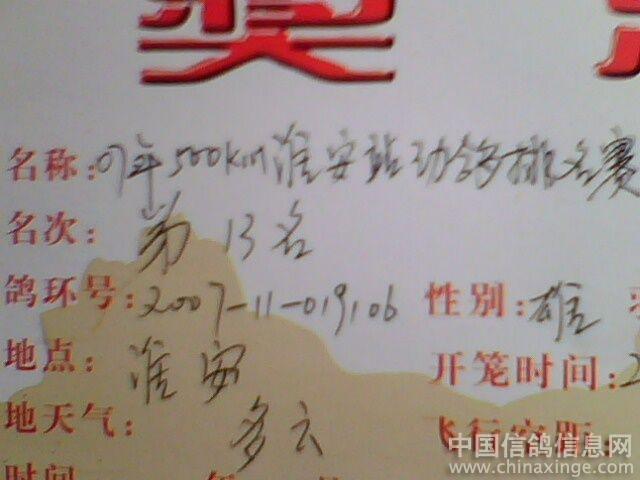 奖
名称:07年500km淮安站幼鸽排名赛
名次: 第13名
鸽环号:2007-11-019106 性别:雄
地点: 淮安 开笼时间:2
地天气: 多云 飞行空距:
时间
中国信鸽信息网
www.chinaxinge.com